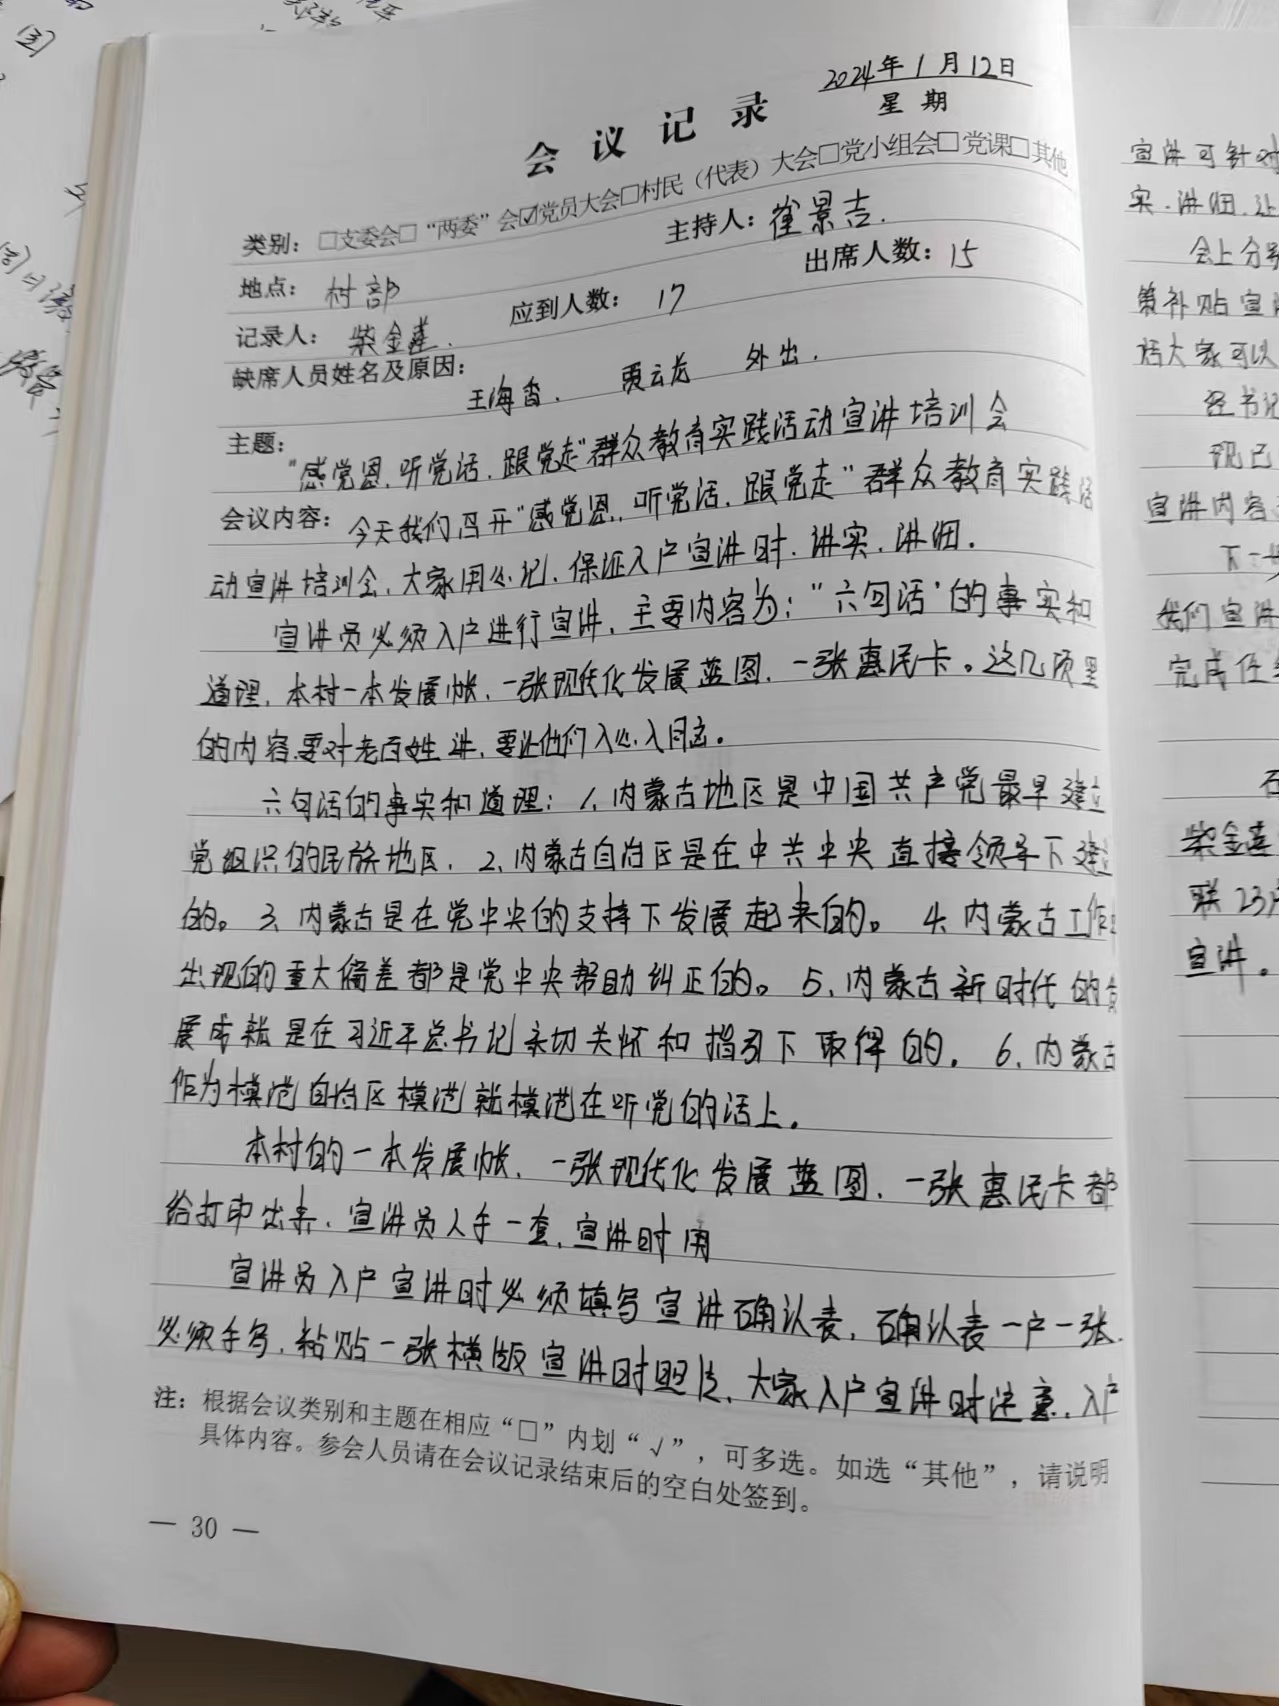 2024年1月12日
星期
会议记录
类别：□支委会□“两委”会☑党员大会□村民（代表）大会□党小组会□党课□其他
地点：村部 主持人：崔景吉.
记录人：柴金莲. 应到人数：17 出席人数：15
缺席人员姓名及原因：
王海香. 贾云龙 外出.
主题：“感党恩.听党话.跟党走”群众教育实践活动宣讲培训会
会议内容：今天我们召开“感党恩.听党话.跟党走”群众教育实践活
动宣讲培训会.大家用心记.保证入户宣讲时.讲实.讲细.
宣讲员必须入户进行宣讲.主要内容为：“六句话”的事实和
道理.本村一本发展帐.一张现代化发展蓝图.一张惠民卡。这几项里
的内容要对老百姓讲.要让他们入心.入脑。
六句话的事实和道理：1.内蒙古地区是中国共产党最早建立
党组织的民族地区.2.内蒙古自治区是在中共中央直接领导下建立
的。3.内蒙古是在党中央的支持下发展起来的。4.内蒙古工作中
出现的重大偏差都是党中央帮助纠正的。5.内蒙古新时代的发
展成就是在习近平总书记亲切关怀和指引下取得的.6.内蒙古
作为模范自治区模范就模范在听党的话上.
本村的一本发展帐.一张现代化发展蓝图.一张惠民卡都
给打印出来.宣讲员人手一套.宣讲时用
宣讲员入户宣讲时必须填写宣讲确认表.确认表一户一张.
必须手写.粘贴一张横版宣讲时照片.大家入户宣讲时注意.入户
注：根据会议类别和主题在相应“□”内划“√”，可多选。如选“其他”，请说明
具体内容。参会人员请在会议记录结束后的空白处签到。
— 30 —
宣讲可针对
实.讲细.让
会上分别
策补贴宣
话大家可以
经书记
现已
宣讲内容
下一步
我们宣讲
完成任务
石
柴金莲
联23户
宣讲。